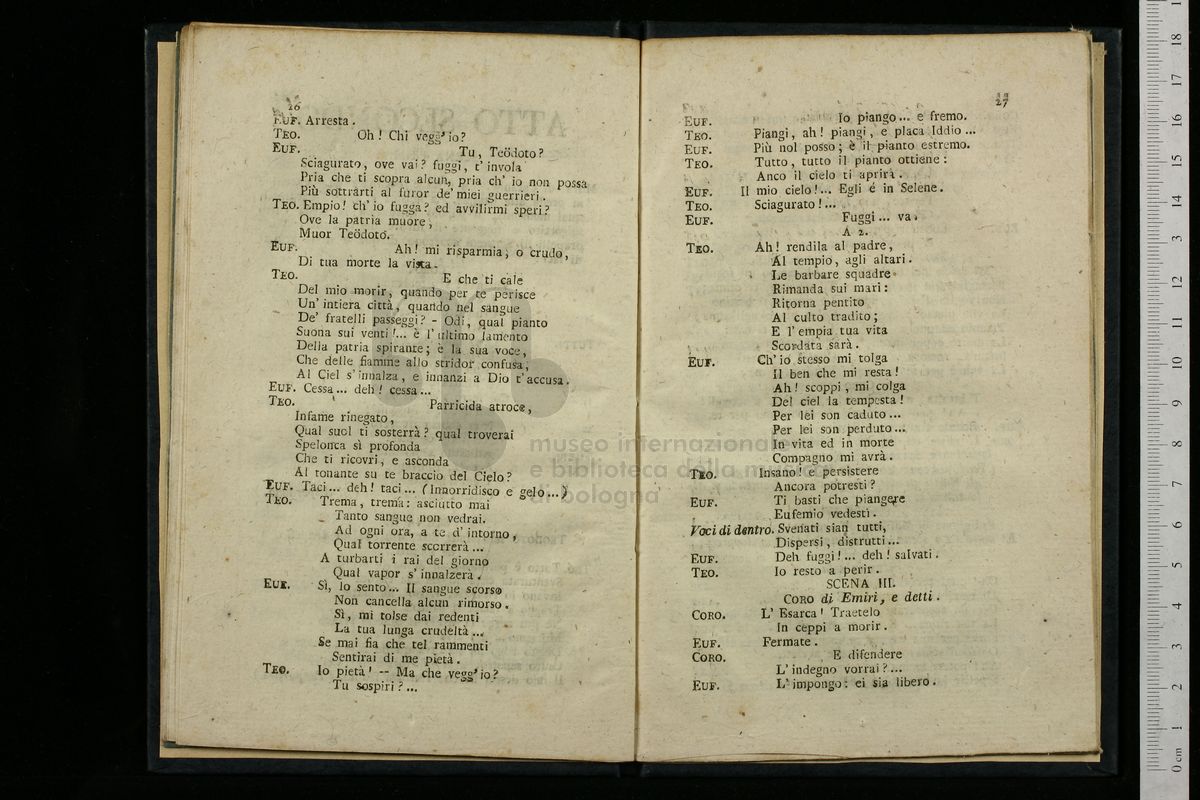 26
EUF. Arresta.
TEO. Oh! Chi vegg' io?
EUF. Tu, Teödoto?
Sciagurato, ove vai? fuggi, t' invola
Pria che ti scopra alcun, pria ch' io non possa
Più sottrarti al furor de' miei guerrieri.
TEO. Empio! ch' io fugga? ed avvilirmi speri?
Ove la patria muore,
Muor Teödoto.
EUF. Ah! mi risparmia, o crudo,
Di tua morte la vista.
TEO. E che ti cale
Del mio morir, quando per te perisce
Un' intiera città, quando nel sangue
De' fratelli passeggi? - Odi, qual pianto
Suona sui venti!... è l' ultimo lamento
Della patria spirante; è la sua voce,
Che delle fiamme allo stridor confusa,
Al Ciel s' innalza, e innanzi a Dio t' accusa.
EUF. Cessa... deh! cessa...
TEO. Parricida atroce,
Infame rinegato,
Qual suol ti sosterrà? qual troverai
Spelonca sì profonda
Che ti ricovri, e asconda
Al tonante su te braccio del Cielo?
EUF. Taci... deh! taci... (Innorridisco e gelo...)
TEO. Trema, trema: asciutto mai
Tanto sangue non vedrai.
Ad ogni ora, a te d' intorno,
Qual torrente scorrerà...
A turbarti i rai del giorno
Qual vapor s' innalzerà.
EUF. Sì, lo sento... Il sangue scorso
Non cancella alcun rimorso.
Sì, mi tolse dai redenti
La tua lunga crudeltà...
Se mai fia che tel rammenti
Sentirai di me pietà.
TEO. Io pietà! -- Ma che vegg' io?
Tu sospiri?...
27
EUF. Io piango... e fremo.
TEO. Piangi, ah! piangi, e placa Iddio...
EUF. Più nol posso; è il pianto estremo.
TEO. Tutto, tutto il pianto ottiene:
Anco il cielo ti aprirà.
EUF. Il mio cielo!... Egli é in Selene.
TEO. Sciagurato!...
EUF. Fuggi... va.
A 2.
TEO. Ah! rendila al padre,
Al tempio, agli altari.
Le barbare squadre
Rimanda sui mari:
Ritorna pentito
Al culto tradito;
E l' empia tua vita
Scordata sarà.
EUF. Ch' io stesso mi tolga
Il ben che mi resta!
Ah! scoppi, mi colga
Del ciel la tempesta!
Per lei son caduto...
Per lei son perduto...
In vita ed in morte
Compagno mi avrà.
TEO. Insano! e persistere
Ancora potresti?
EUF. Ti basti che piangere
Eufemio vedesti.
Voci di dentro. Svenati sian tutti,
Dispersi, distrutti...
EUF. Deh fuggi!... deh! salvati.
TEO. Io resto a perir.
SCENA III.
CORO di Emiri, e detti.
CORO. L' Esarca! Traetelo
In ceppi a morir.
EUF. Fermate.
CORO. E difendere
L' indegno vorrai?...
EUF. L' impongo: ei sia libero.
museo internazionale
e biblioteca della musica
di bologna
0 cm 1 2 3 4 5 6 7 8 9 10 11 12 13 14 15 16 17 18